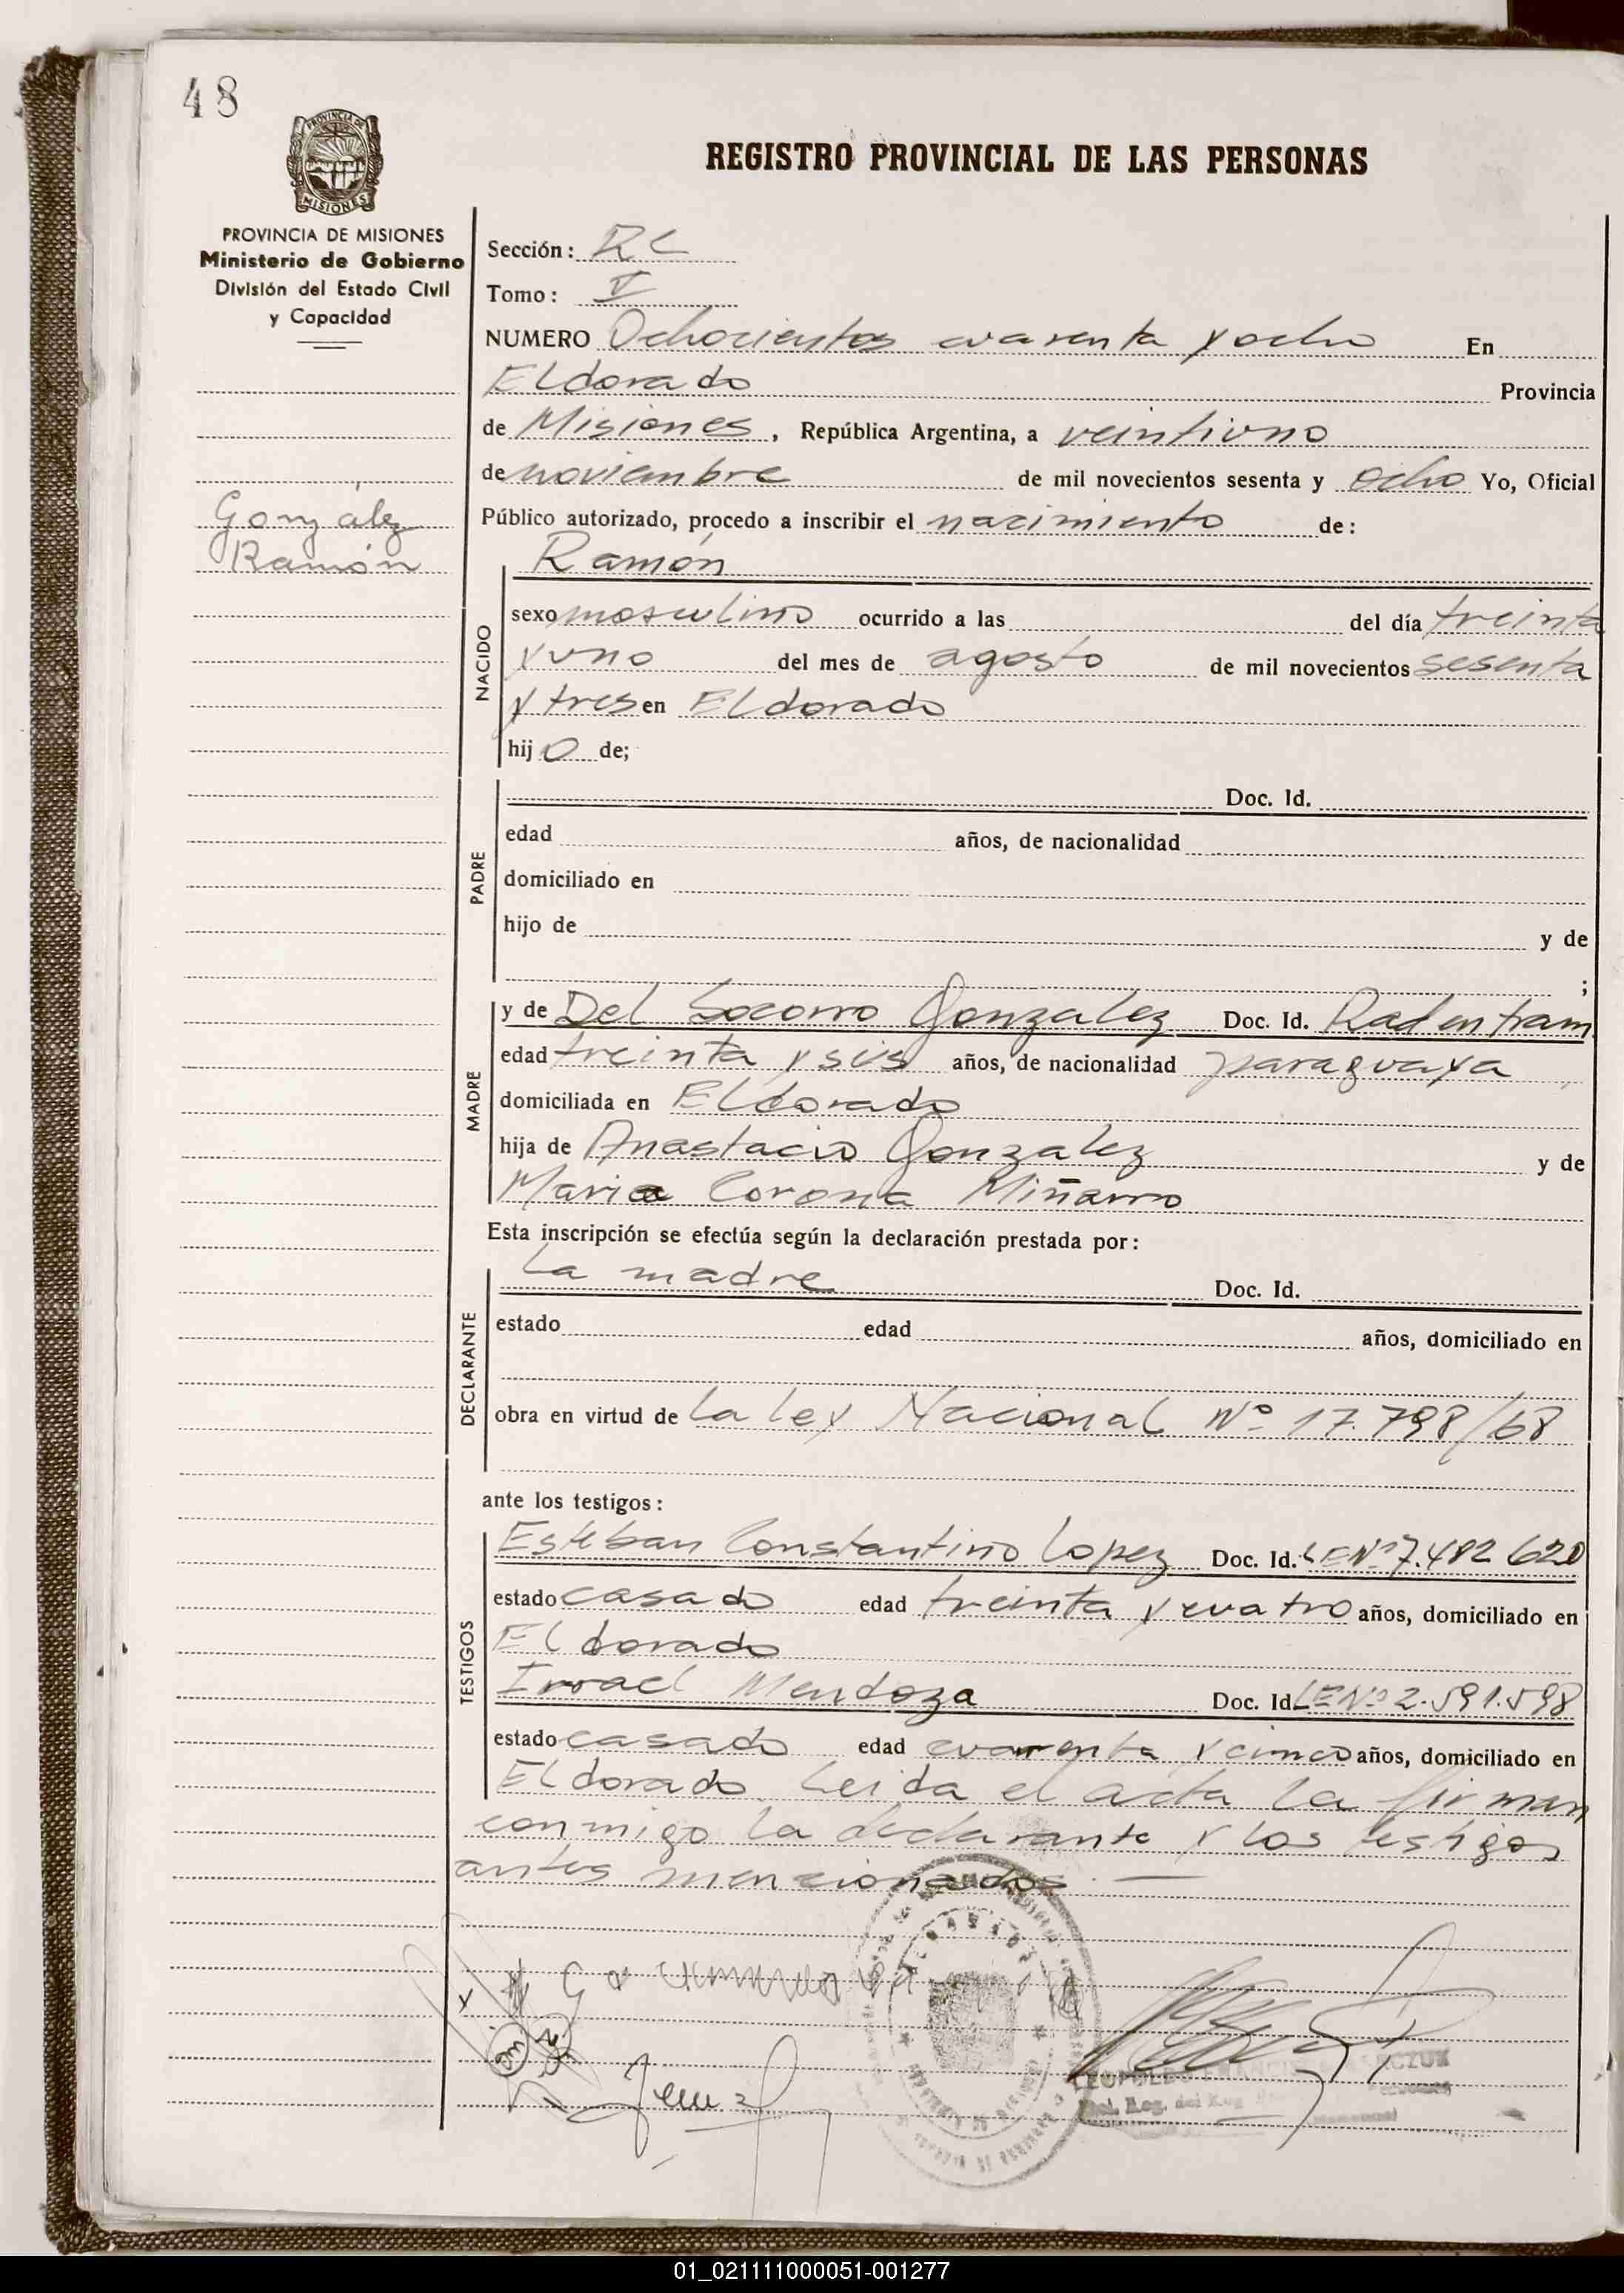 48
PROVINCIA DE MISIONES
REGISTRO PROVINCIAL DE LAS PERSONAS
PROVINCIA DE MISIONES
Ministerio de Gobierno
División del Estado Civil
y Capacidad
González
Ramón
Sección: RC
Tomo: V
NUMERO Ochocientos cuarenta y ocho En
Eldorado Provincia
de Misiones, República Argentina, a veintiuno
de noviembre de mil novecientos sesenta y ocho Yo, Oficial
Público autorizado, procedo a inscribir el nacimiento de:
Ramón
NACIDO
sexo masculino ocurrido a las del día treinta
y uno del mes de agosto de mil novecientos sesenta
y tres en Eldorado
hijo de;
PADRE
Doc. Id.
edad años, de nacionalidad
domiciliado en
hijo de y de
;
MADRE
y de Del Socorro Gonzalez Doc. Id. Rad en tram
edad treinta y seis años, de nacionalidad paraguaya
domiciliada en Eldorado
hija de Anastacio Gonzalez y de
Maria Corona Miñarro
Esta inscripción se efectúa según la declaración prestada por:
DECLARANTE
La madre Doc. Id.
estado edad años, domiciliado en
obra en virtud de la ley Nacional Nº 17.798/68
ante los testigos:
TESTIGOS
Esteban Constantino Lopez Doc. Id. LE Nº 7.482 620
estado casado edad treinta y cuatro años, domiciliado en
Eldorado
Israel Mendoza Doc. Id LE Nº 2.591.598
estado casado edad cuarenta y cinco años, domiciliado en
Eldorado. Leida el acta la firman
conmigo la declarante y los testigos
antes mencionados. —
01_021111000051-001277